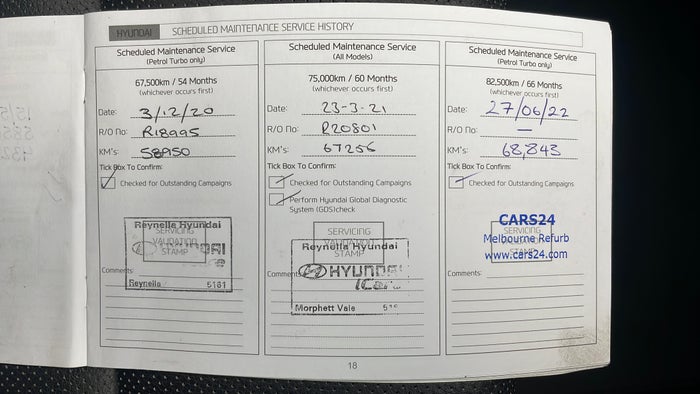 HYUNDAI SCHEDULED MAINTENANCE SERVICE HISTORY
Scheduled Maintenance Service
(Petrol Turbo only)
67,500km / 54 Months
(whichever occurs first)
Date: 3/12/20
R/O No: R18995
KM's: 58950
Tick Box To Confirm:
Checked for Outstanding Campaigns
Reynella Hyundai
SERVICING
VALIDATION
STAMP
Reynella 5161
Comments:
Scheduled Maintenance Service
(All Models)
75,000km / 60 Months
(whichever occurs first)
Date: 23-3-21
R/O No: R20801
KM's: 67256
Tick Box To Confirm:
Checked for Outstanding Campaigns
Perform Hyundai Global Diagnostic
System (GDS)check
SERVICING
VALIDATION
Reynella Hyundai
STAMP
HYUNDAI
iCar
Morphett Vale
Comments:
Scheduled Maintenance Service
(Petrol Turbo only)
82,500km / 66 Months
(whichever occurs first)
Date: 27/06/22
R/O No: —
KM's: 68,843
Tick Box To Confirm:
Checked for Outstanding Campaigns
CARS24
SERVICING
Melbourne Refurb
www.cars24.com
STAMP
Comments:
18